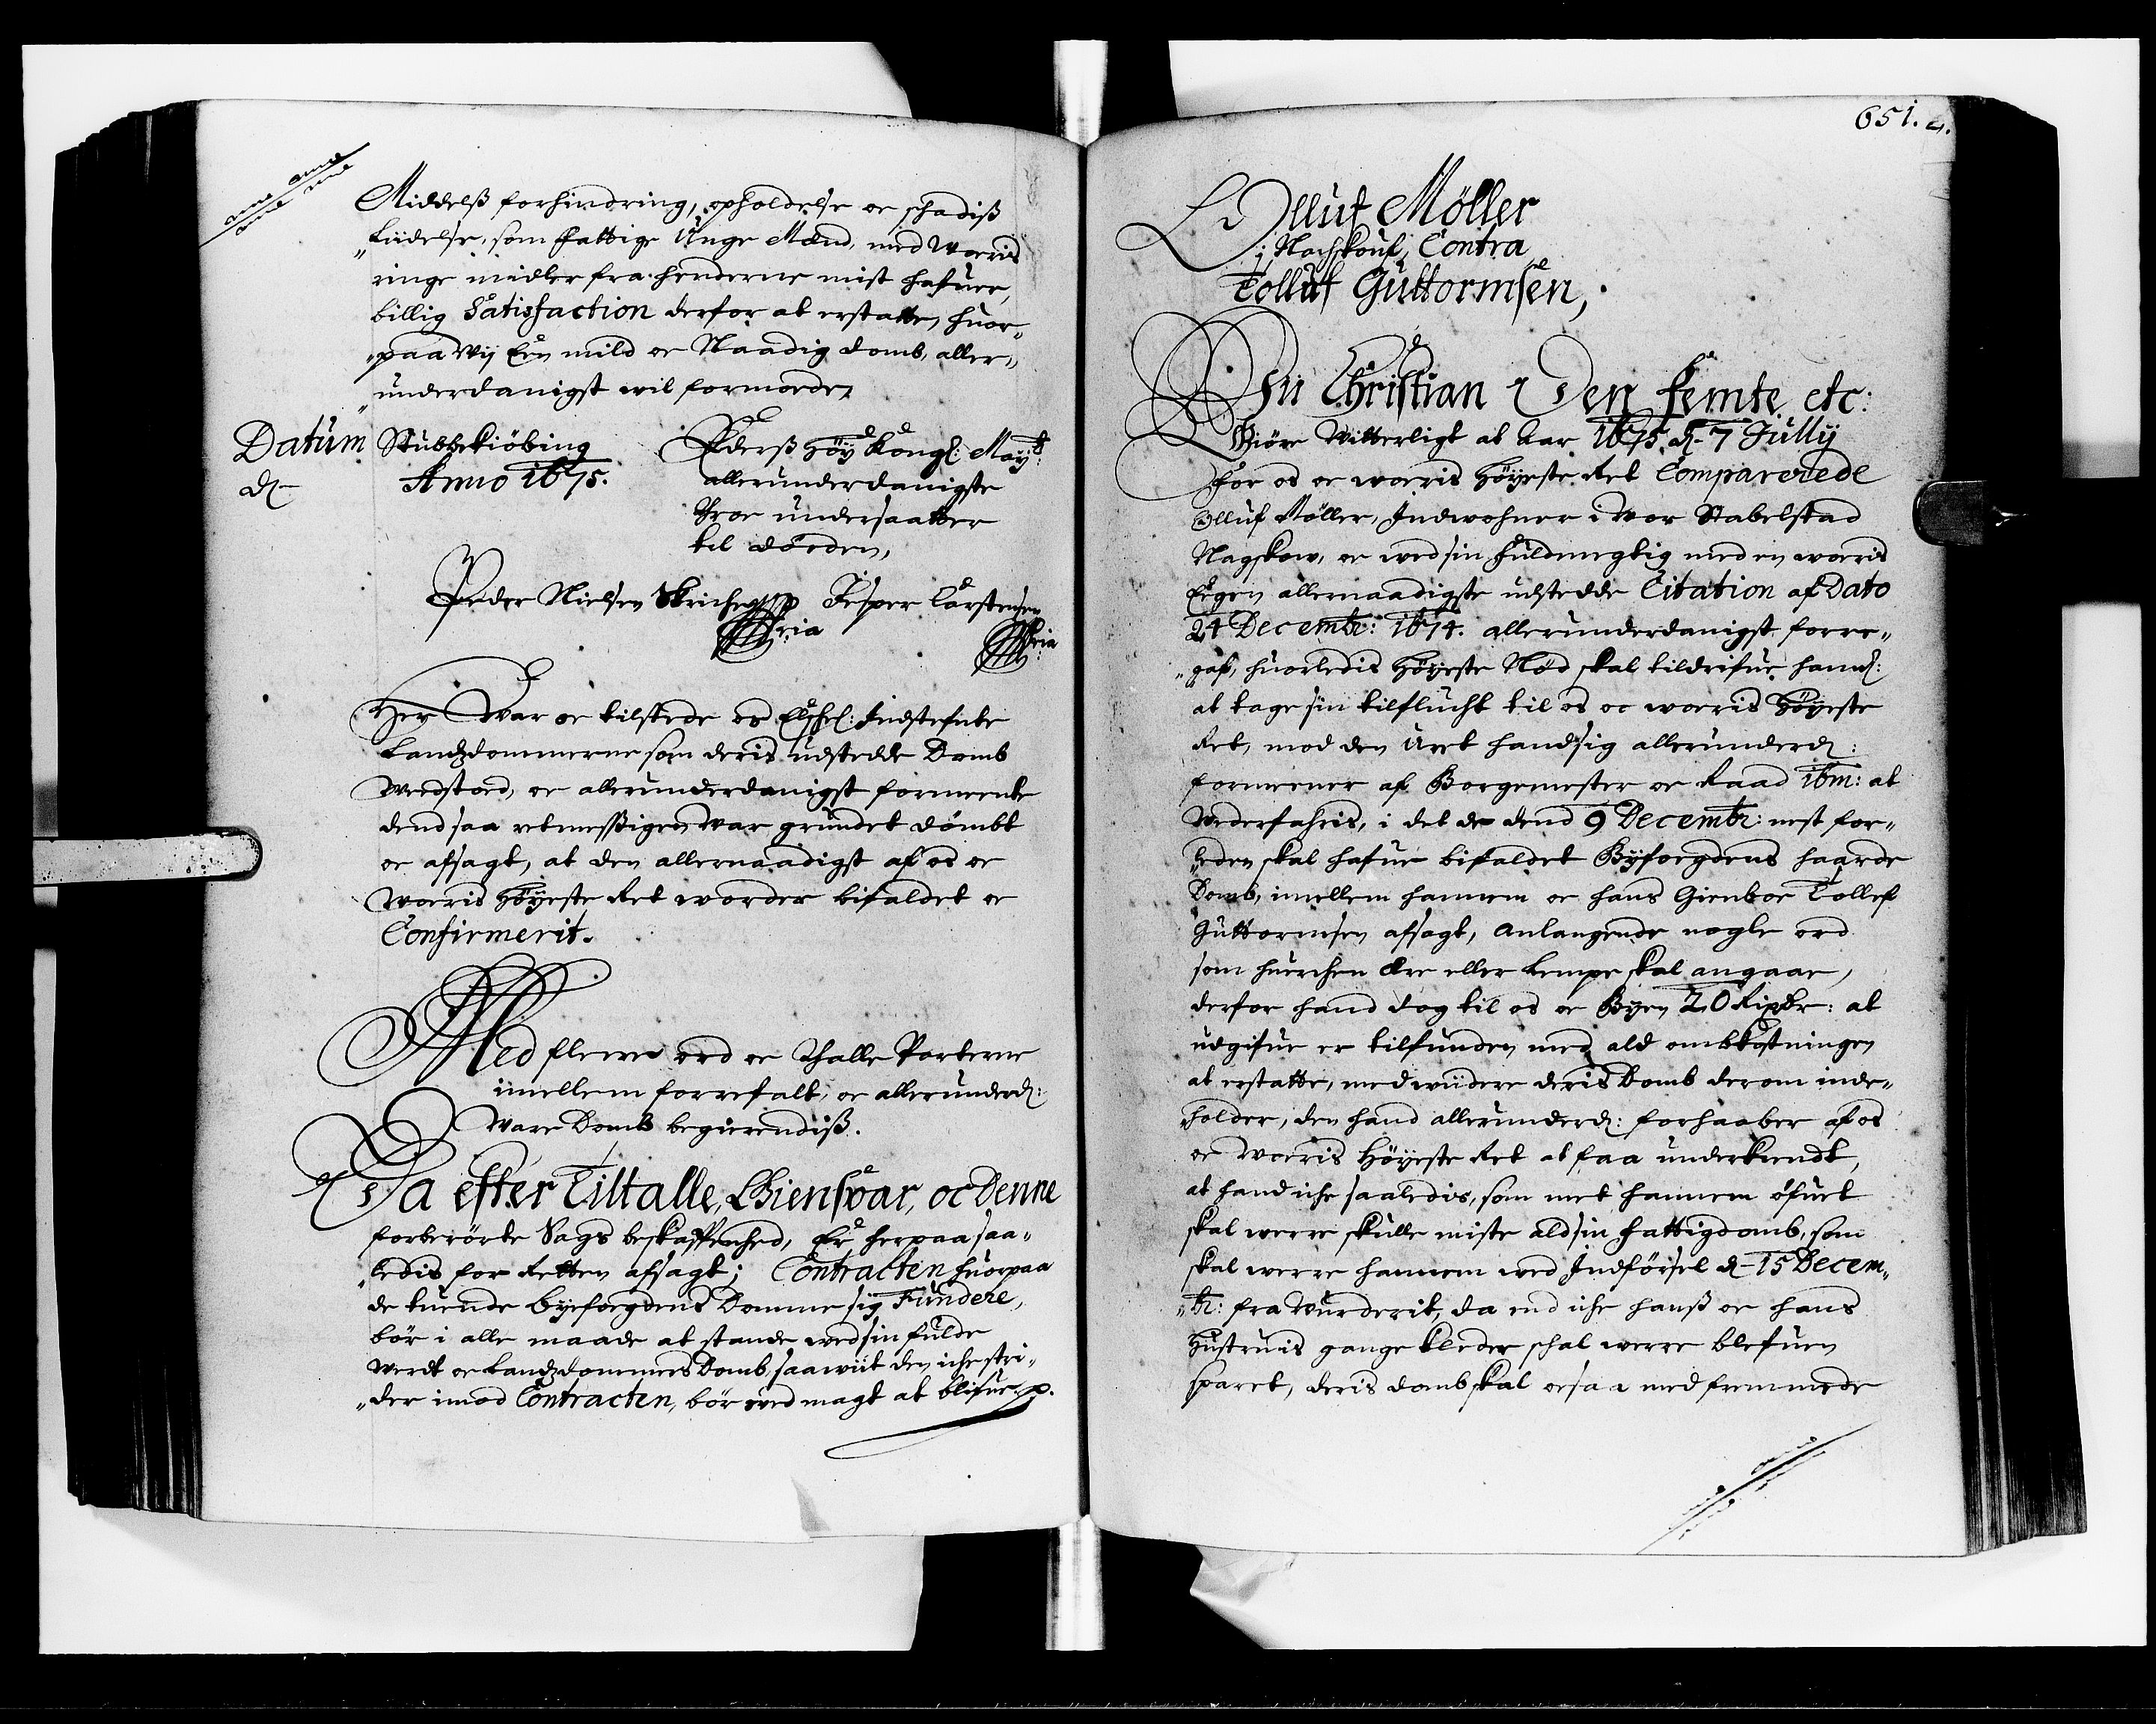 Middelß forhindring, opholdelse oc schadiß
„ Liidelse, som fattige Unge Mænd, med voris
ringe midler fra henderne mist hafuer,
billig Satisfaction derfor at erstatte, huor„
„paa Wij Een mild oc Naadig domb, aller„
„underdanigst wil formode,
Datum Stubbekiöbing
d–
Anno 1675.
Eders höy Kongl: Mayts:
allerunderdanigste
Troe undersaatter
til döeden,
Peder Nielsen Jesper Carstensen
Her War oc tilstede os Elschel: Indstefnte
Landzdommerne som deris udstedde Domb
Wedstoed, oc allerunderdanigst formeente
dend saa retmessigen War grundet dömbt
oc afsagt, at den allernaadigst af os oc
Woris höyeste Ret worder bifaldet oc
Confirmerit.
Med flerre ord oc Thalle Parterne
imellem forrefalt, oc allerunderd:
Ware Domb begierendiß.
Da efter Tiltalle, Giensvar, oc Denne
forberörte Sags beskaffenhed, Er herpaa saa„
„ledis for Retten afsagt; Contracten huorpaa
de tuende byefogdens Domme sig Fundere,
bör i alle maade at stande ved sin fulde
Werdt oc Landzdommers Domb, saawiit den iche stri„
„der imod Contracten, bör ved magt at blifue. p.
651. 2.
Olluf Möller
i Nachskouf, Contra
Tolluf Guttormsen,
Vii Christian Den femte etc:
Giöre Witterligt at Aar 1675. d– 7 Jully
for os oc woris höyeste Ret Comparerede
Olluf Möller, Indwohner i Vor Stabelstad
Nagskow, oc wed sin fuldmegtig med en woris
Egen allernaadigste udstedde Citation af Dato
24 Decembr: 1674. allerunderdanigst forre„
„gaf, huorledis höyeste Nöd skal tildrifue hannem:
at tage sin tilflucht til os oc woris Höyeste
Ret, mod den Uret hand sig allerunderd:
formeener af Borgemester oc Raad ibm: at
Wederfahris, i det de dend 9 Decembr: nest for„
„leden skal hafue bifaldet Byfoegdens haarde
Domb, imellem hannem oc hans Gienboe Tollef
Guttormsen afsagt, anlangende nogle ord
som huerchen ære eller Lempe skal angaae,
derfor hand dog til os oc Byen 20 Rixdr: at
udgifue er tilfunden med ald ombkostningen
at erstatte, med widere deris Domb derom inde„
„holder, den hand allerunderd: forhaaber af os
oc Woris Höyeste Ret at faa underkiendt,
at hand iche saaledis, som met hannem öfuet
skal werre skulle miste ald sin fattigdomb, som
skal werre hannem wed Indförsel d– 15 Decem„
„br: fra Vurderit, da end iche hanß oc hans
Hustruis gange kleder schal werre blefuen
sparet, deris domb skal ocsaa med fremmede